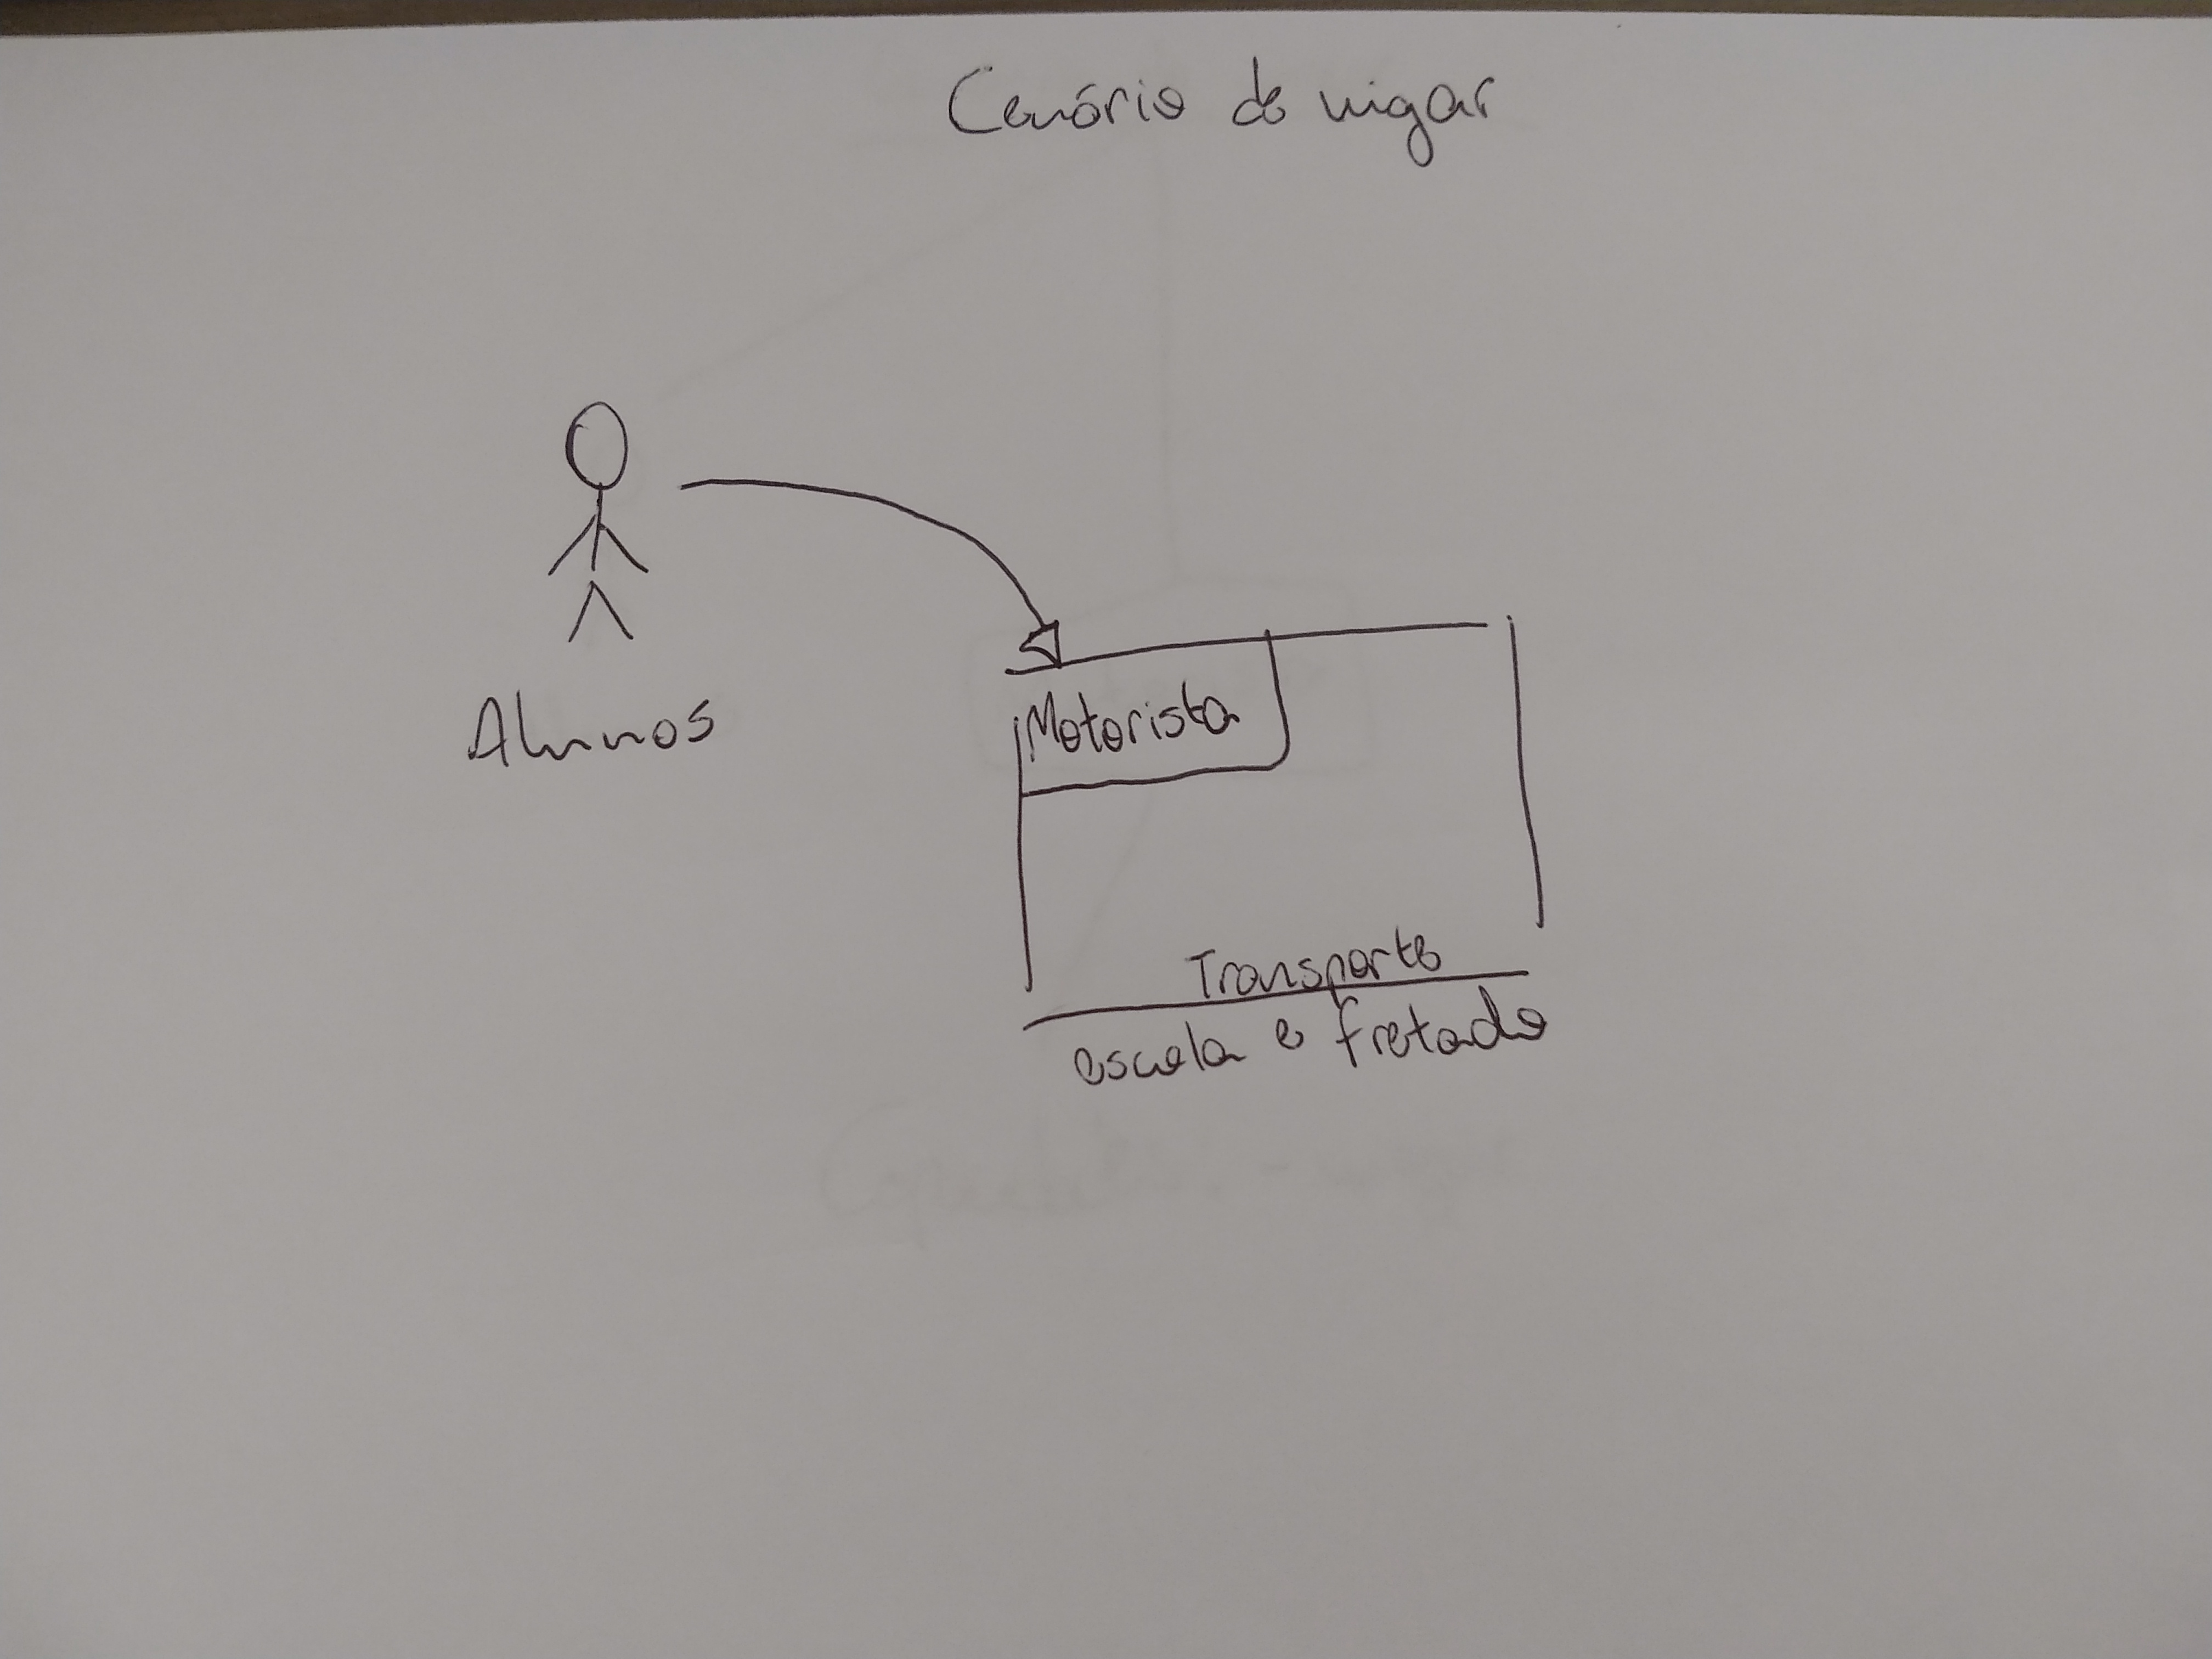 Cenário de vigar
Alunos
Motorista
Transporte
escola e fretado